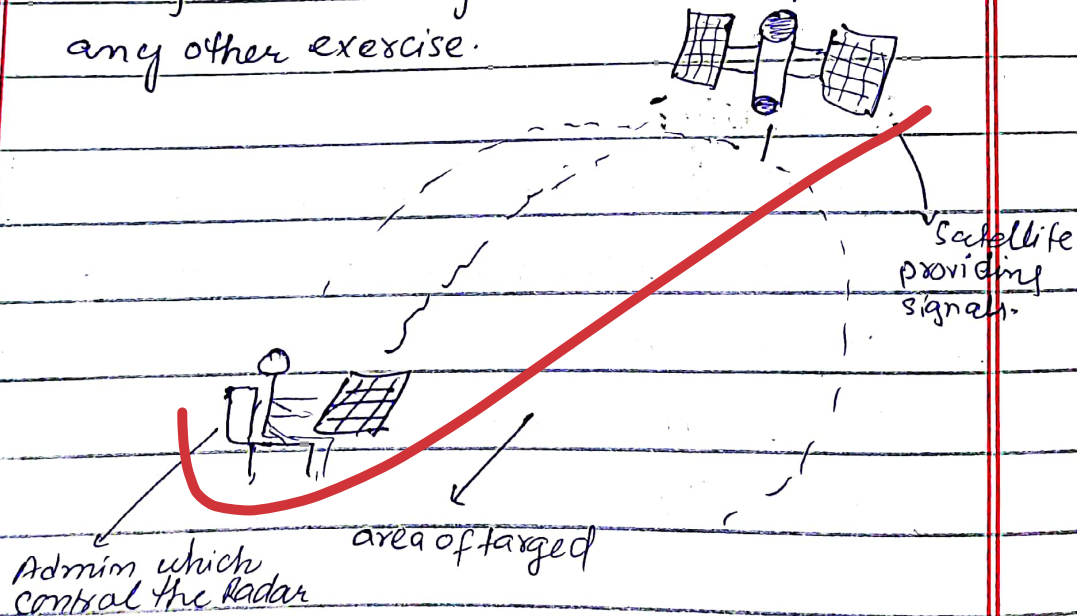 any other exercise.
Satellite
providing
signals.
area of targed
Admin which
control the Radar